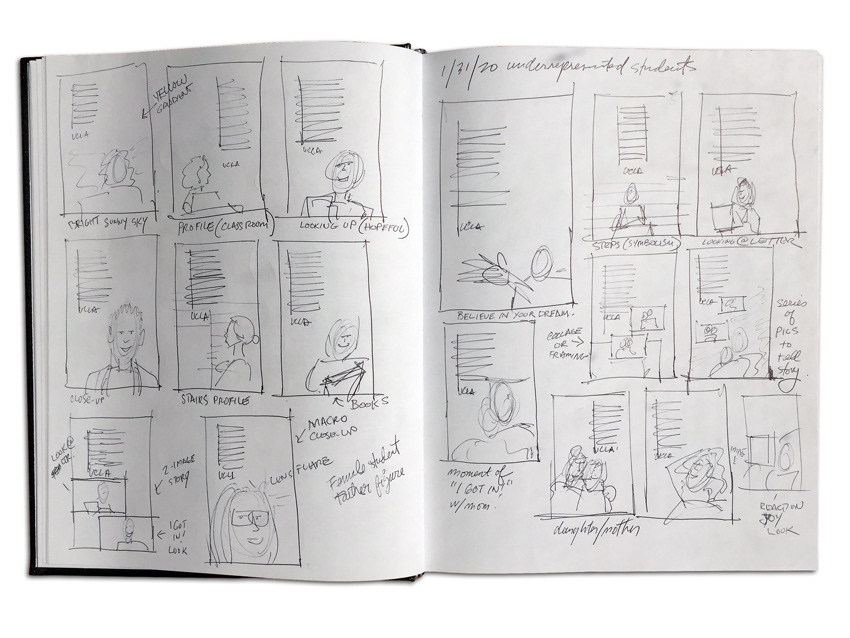 YELLOW
GRADIENT
UCLA
BRIGHT SUNNY SKY
UCLA
PROFILE (CLASSROOM)
UCLA
LOOKING UP (HOPEFUL)
UCLA
CLOSE-UP
UCLA
STAIRS PROFILE
UCLA
BOOKS
LOOK@
UCLA
2-IMAGE
STORY
"I GOT
IN!"
LOOK
UCLA
MACRO
CLOSE-UP
LENS FLARE
Female student
Father figure
1/31/20 underrepresented students
UCLA
BELIEVE IN YOUR DREAM.
UCLA
STEPS (SYMBOLISM)
UCLA
LOOKING @ LETTER
COLLAGE
OR
FRAMING
UCLA
UCLA
series
of
PICS
to
tell
story.
UCLA
moment of
"I GOT IN!"
w/mom.
UCLA
daughter/mother
UCLA
REACTION
JOY
LOOK